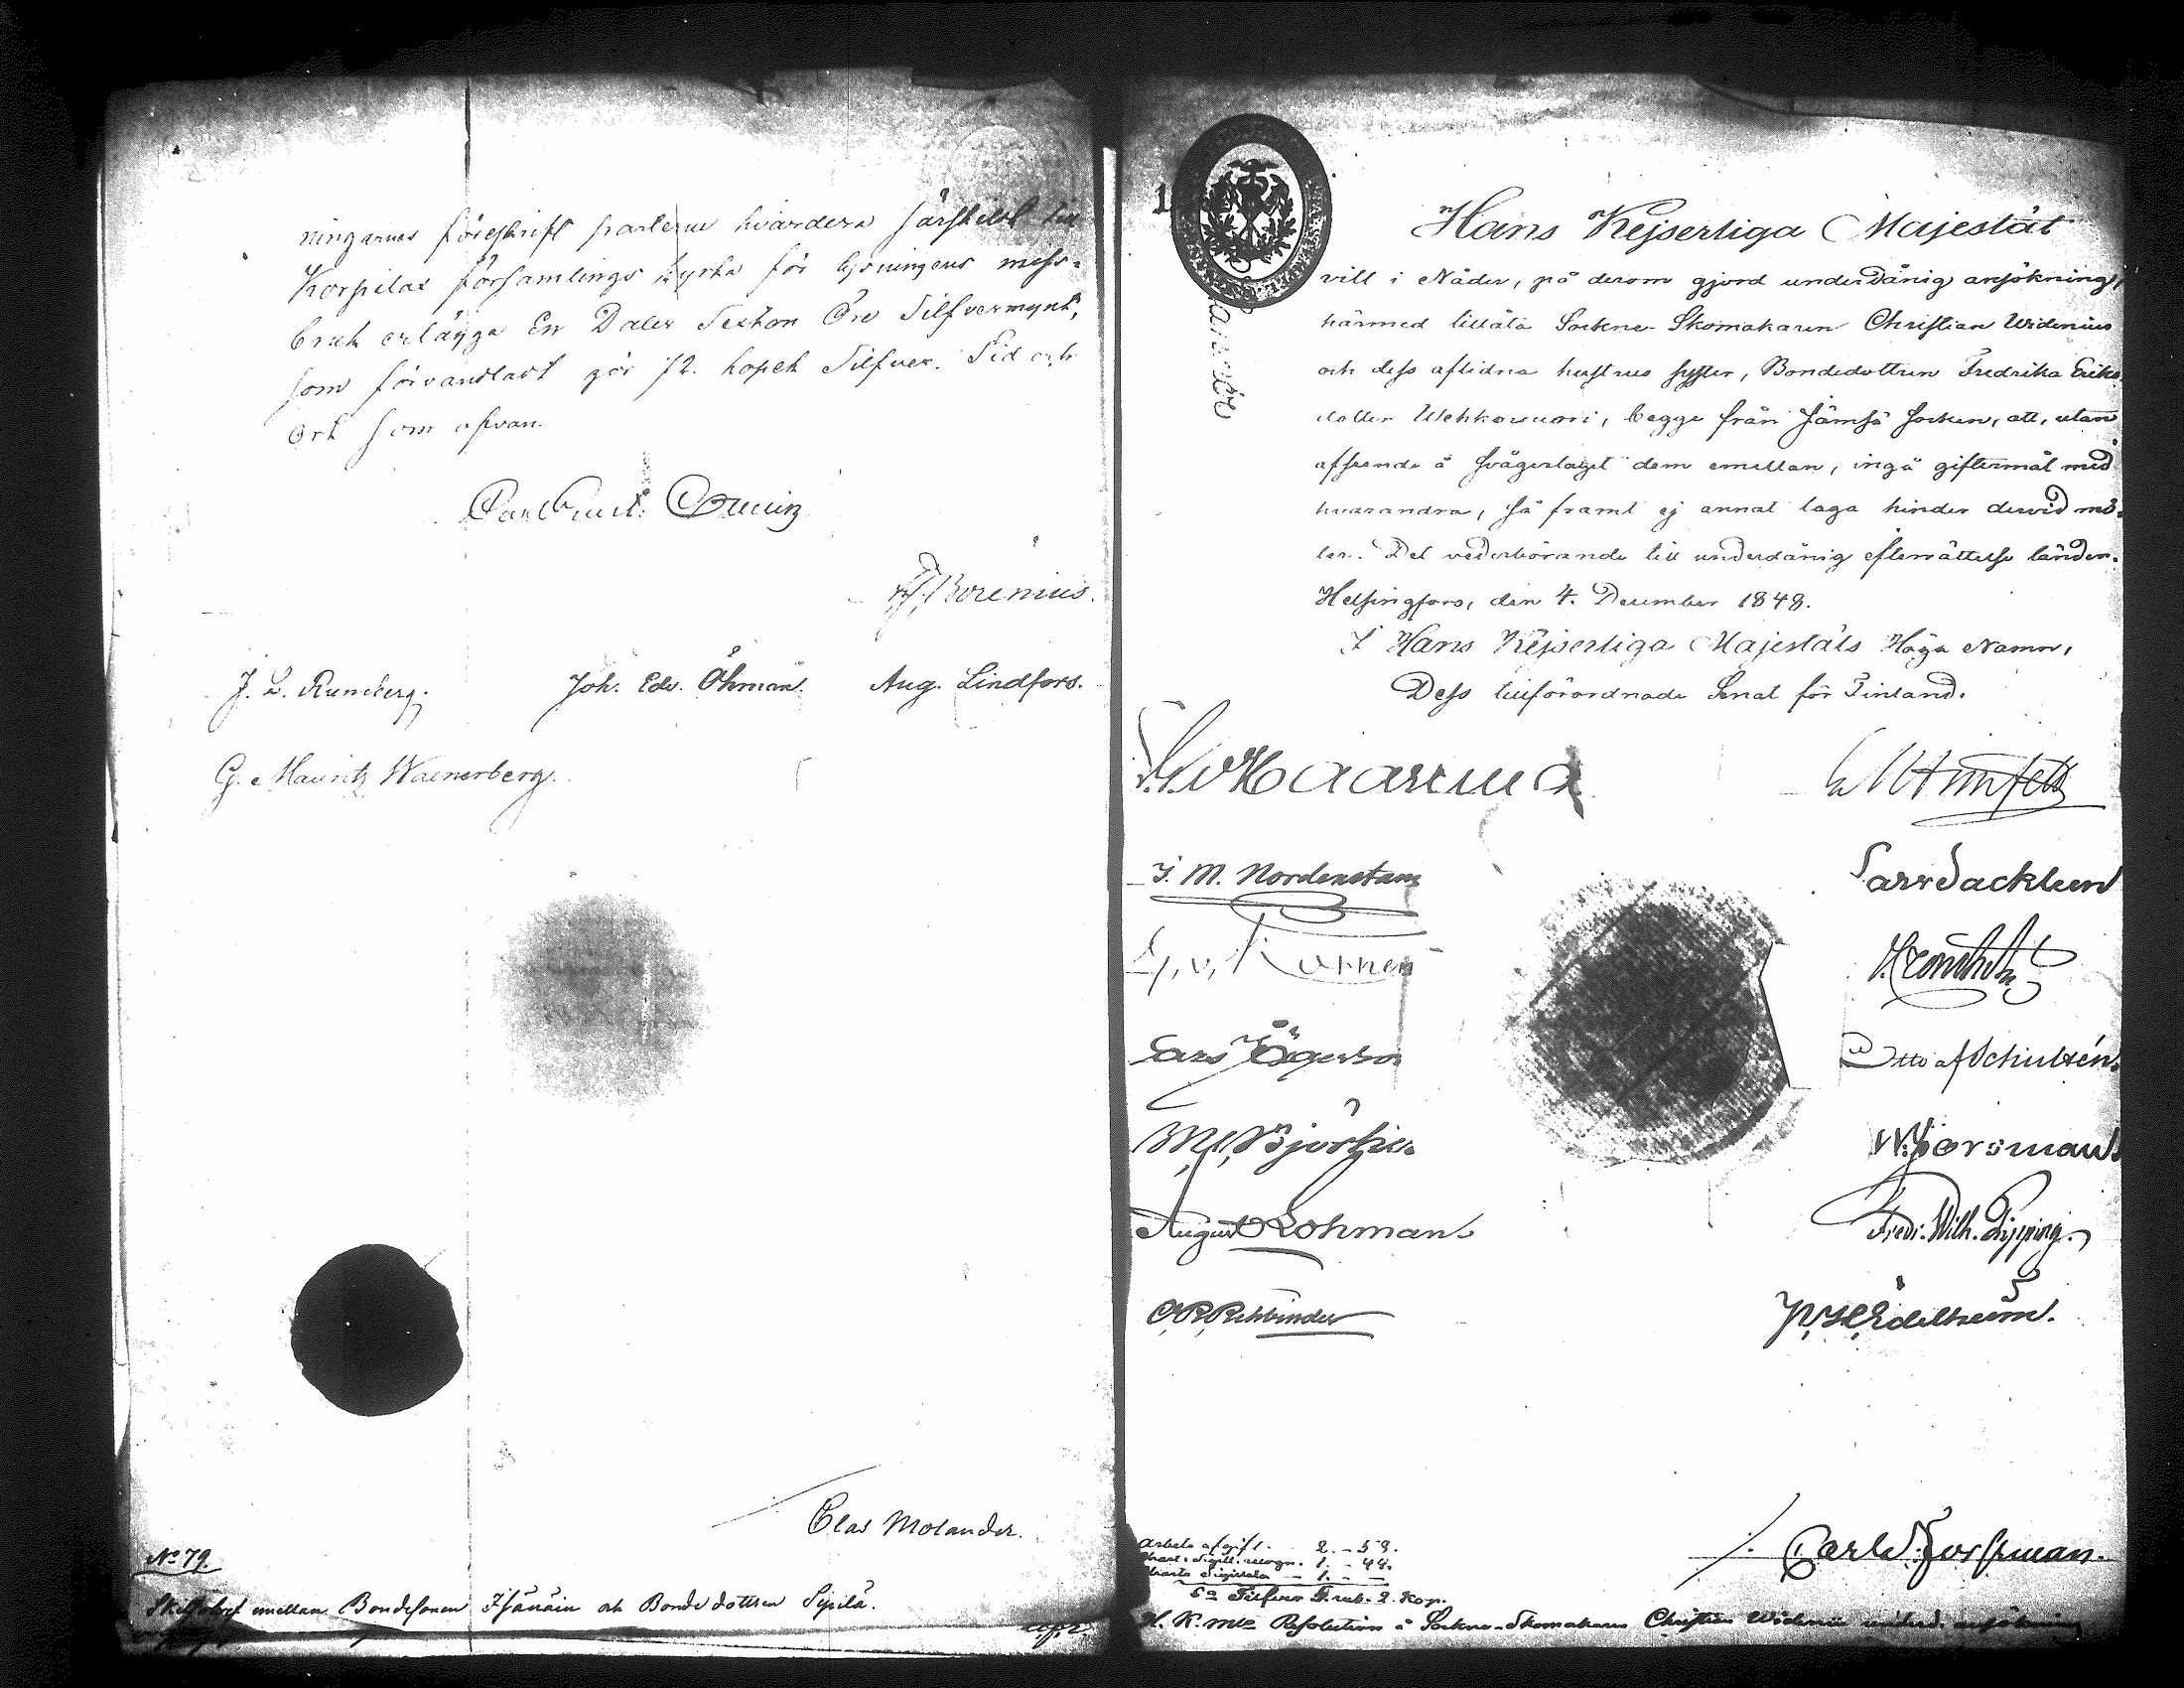 ningarnes föreskrift parterne hvardera särskildt till
Korpilax församlings kyrka för lysningens miss-
bruk erlägga En Daler Sexton Öre Silfvermynt,
som förvandladt gör 72. kopek Silfver. Tid och
Ort som ofvan.
Borenius.
J. L. Runeberg. Joh. Edv. Öhman. Aug. Lindfors.
G. Mauritz Waenerberg.
Clas Molander.
No 79.
Skiljobref emellan Bondesonen och Bondedottren Sipilä.
Hans Kejserliga Majestät
vill i Nåder, på derom gjord underdånig ansökning,
härmed tillåta Sockne-Skomakaren Christian Widenius
och dess aflidna hustrus syster, Bondedottren Fredrika Eriks-
dotter Wehkovuori, begge från Jämsä Socken, att, utan
afseende å svågerlaget dem emellan, ingå giftermål med
hvarandra, så framt ej annat laga hinder dervid mö-
ter. Det vederbörande till underdånig efterrättelse länder.
Helsingfors, den 4. December 1848.
I Hans Kejserliga Majestäts Höga Namn,
Dess tillförordnade Senat för Finland.
L. G. v. Haartman
J. M. Nordenstam Lars Sackleen
Otto af Schultén.
W. Forsman
August Lohman. Fredr. Wilh. Pipping.
O. R. Rehbinder P. H. Edelheim.
Carl Forssman.
Arbets afgift. 2. - 59.
Chart. Sigill. recogn. 1. - 48.
Charta Sigillata - 1. - -
Sa Silfver 5. rub. 2. kop.
H. K. Mts Resolution å Sockne-Skomakaren Christian Widenii underd. ansökning